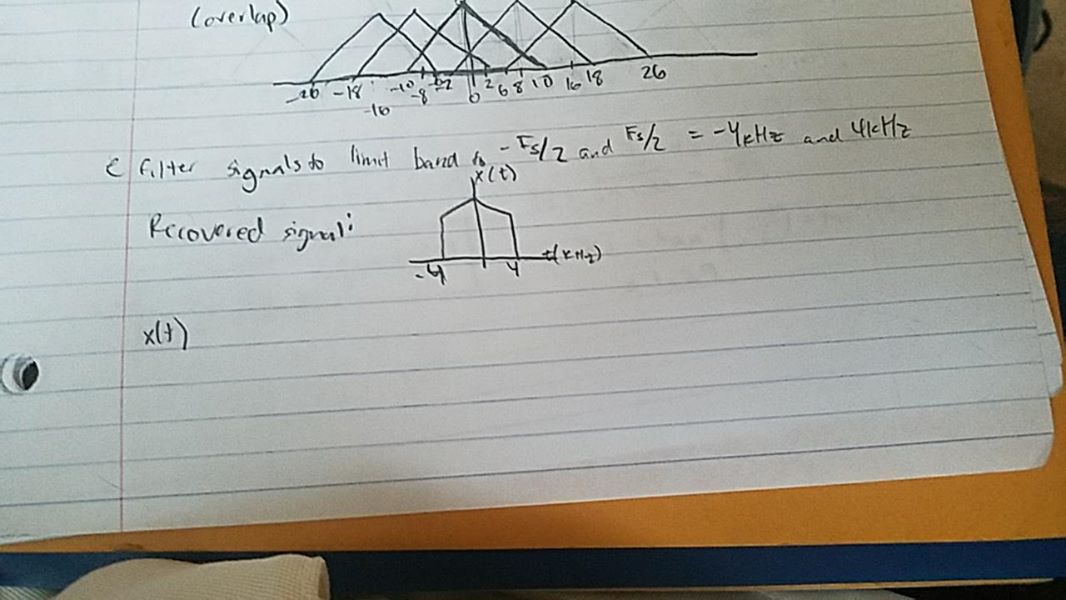 (overlap)
-26 -18 -10 -8 -2 0 2 6 8 10 16 18 26
-16
C Filter signals to limit band to -Fs/2 and Fs/2 = -4kHz and 4kHz
x(t)
Recovered signal:
-4 4 f(kHz)
x(t)